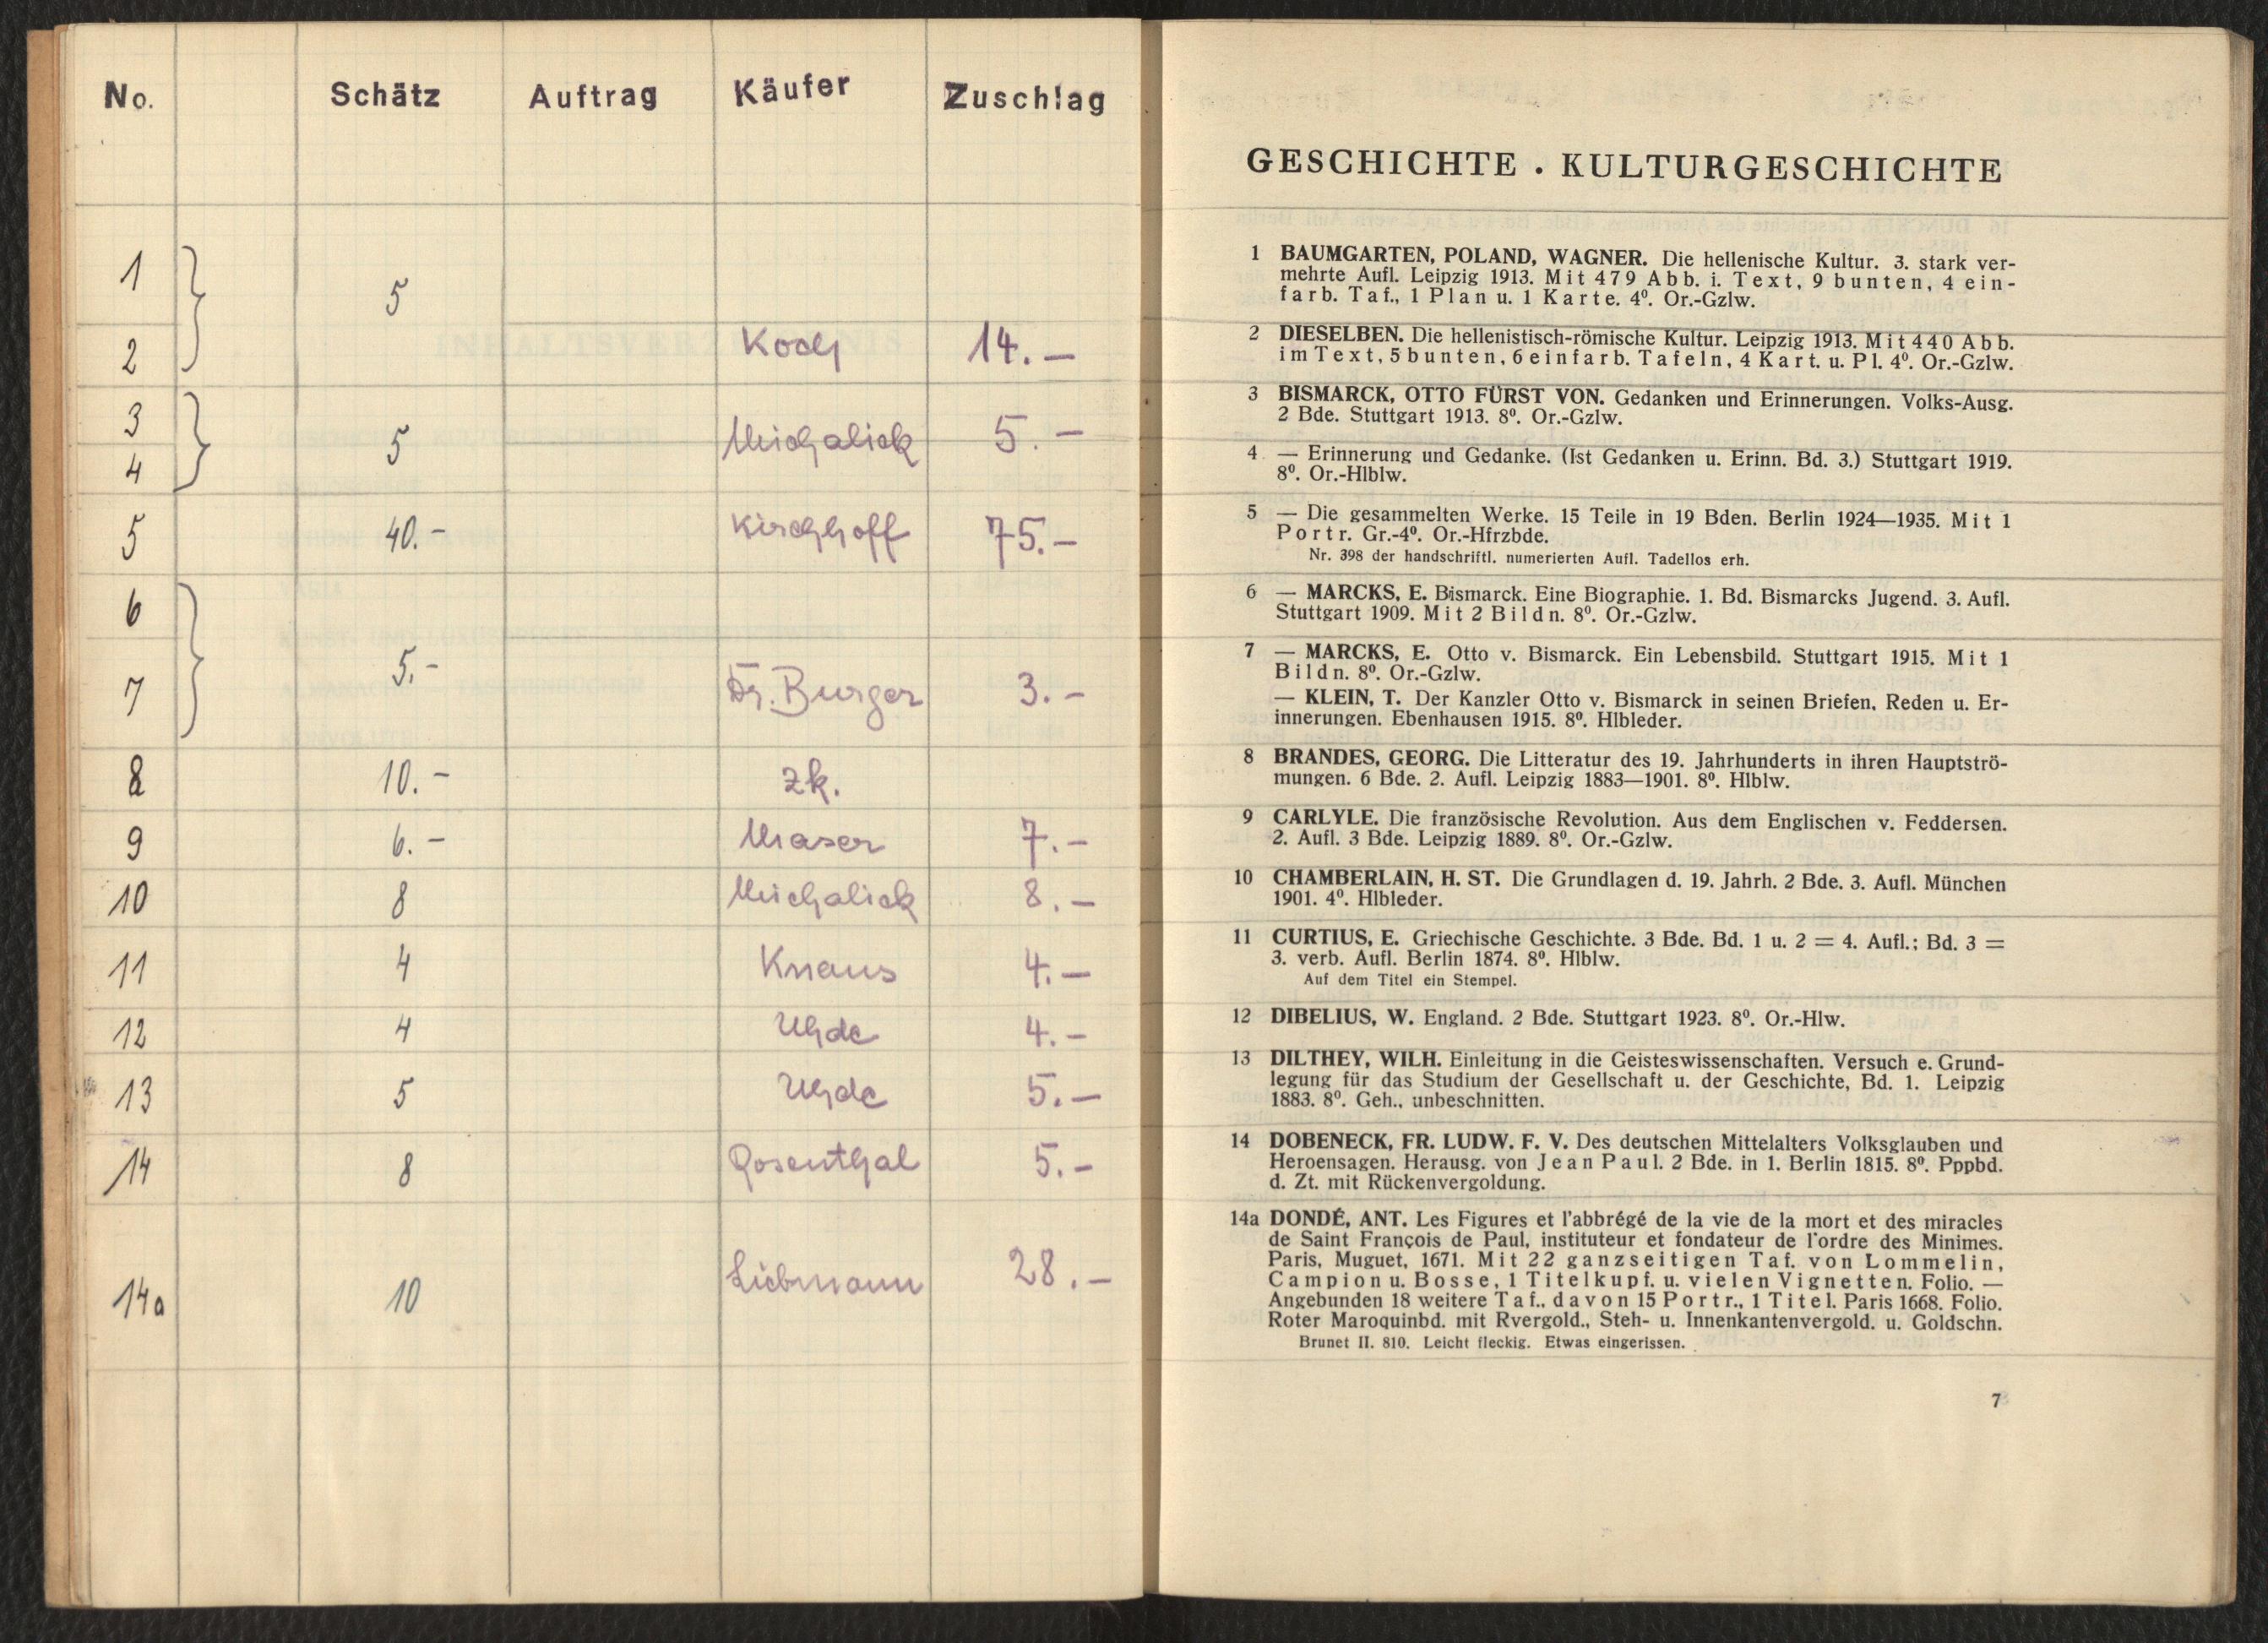 No. Schätz Auftrag Käufer Zuschlag
1 5
2 Koch 14.—
3 5 Michalick 5.—
4
5 40.- Kirchhoff 75.—
6 5.-
7 Dr. Burger 3.-
8 10.- zk.
9 6.- Maser 7.-
10 8 Michalick 8.—
11 4 Knaus 4.—
12 4 Uhde 4.-
13 5 Uhde 5.—
14 8 Rosenthal 5.-
14a 10 Liebmann 28.—
GESCHICHTE . KULTURGESCHICHTE
1 BAUMGARTEN, POLAND, WAGNER. Die hellenische Kultur. 3. stark ver-
mehrte Aufl. Leipzig 1913. Mit 479 Abb. i. Text, 9 bunten, 4 ein-
farb. Taf., 1 Plan u. 1 Karte. 4⁰. Or.-Gzlw.
2 DIESELBEN. Die hellenistisch-römische Kultur. Leipzig 1913. Mit 440 Abb.
im Text, 5 bunten, 6 einfarb. Tafeln, 4 Kart. u. Pl. 4⁰. Or.-Gzlw.
3 BISMARCK, OTTO FÜRST VON. Gedanken und Erinnerungen. Volks-Ausg.
2 Bde. Stuttgart 1913. 8⁰. Or.-Gzlw.
4 — Erinnerung und Gedanke. (Ist Gedanken u. Erinn. Bd. 3.) Stuttgart 1919.
8⁰. Or.-Hlblw.
5 — Die gesammelten Werke. 15 Teile in 19 Bden. Berlin 1924—1935. Mit 1
Portr. Gr.-4⁰. Or.-Hfrzbde.
Nr. 398 der handschriftl. numerierten Aufl. Tadellos erh.
6 — MARCKS, E. Bismarck. Eine Biographie. 1. Bd. Bismarcks Jugend. 3. Aufl.
Stuttgart 1909. Mit 2 Bildn. 8⁰. Or.-Gzlw.
7 — MARCKS, E. Otto v. Bismarck. Ein Lebensbild. Stuttgart 1915. Mit 1
Bildn. 8⁰. Or.-Gzlw.
— KLEIN, T. Der Kanzler Otto v. Bismarck in seinen Briefen, Reden u. Er-
innerungen. Ebenhausen 1915. 8⁰. Hlbleder.
8 BRANDES, GEORG. Die Litteratur des 19. Jahrhunderts in ihren Hauptströ-
mungen. 6 Bde. 2. Aufl. Leipzig 1883—1901. 8⁰. Hlblw.
9 CARLYLE. Die französische Revolution. Aus dem Englischen v. Feddersen.
2. Aufl. 3 Bde. Leipzig 1889. 8⁰. Or.-Gzlw.
10 CHAMBERLAIN, H. ST. Die Grundlagen d. 19. Jahrh. 2 Bde. 3. Aufl. München
1901. 4⁰. Hlbleder.
11 CURTIUS, E. Griechische Geschichte. 3 Bde. Bd. 1 u. 2 = 4. Aufl.; Bd. 3 =
3. verb. Aufl. Berlin 1874. 8⁰. Hlblw.
Auf dem Titel ein Stempel.
12 DIBELIUS, W. England. 2 Bde. Stuttgart 1923. 8⁰. Or.-Hlw.
13 DILTHEY, WILH. Einleitung in die Geisteswissenschaften. Versuch e. Grund-
legung für das Studium der Gesellschaft u. der Geschichte, Bd. 1. Leipzig
1883. 8⁰. Geh., unbeschnitten.
14 DOBENECK, FR. LUDW. F. V. Des deutschen Mittelalters Volksglauben und
Heroensagen. Herausg. von Jean Paul. 2 Bde. in 1. Berlin 1815. 8⁰. Pppbd.
d. Zt. mit Rückenvergoldung.
14a DONDÉ, ANT. Les Figures et l'abbrégé de la vie de la mort et des miracles
de Saint François de Paul, instituteur et fondateur de l'ordre des Minimes.
Paris, Muguet, 1671. Mit 22 ganzseitigen Taf. von Lommelin,
Campion u. Bosse, 1 Titelkupf. u. vielen Vignetten. Folio. —
Angebunden 18 weitere Taf., davon 15 Portr., 1 Titel. Paris 1668. Folio.
Roter Maroquinbd. mit Rvergold., Steh- u. Innenkantenvergold. u. Goldschn.
Brunet II. 810. Leicht fleckig. Etwas eingerissen.
7